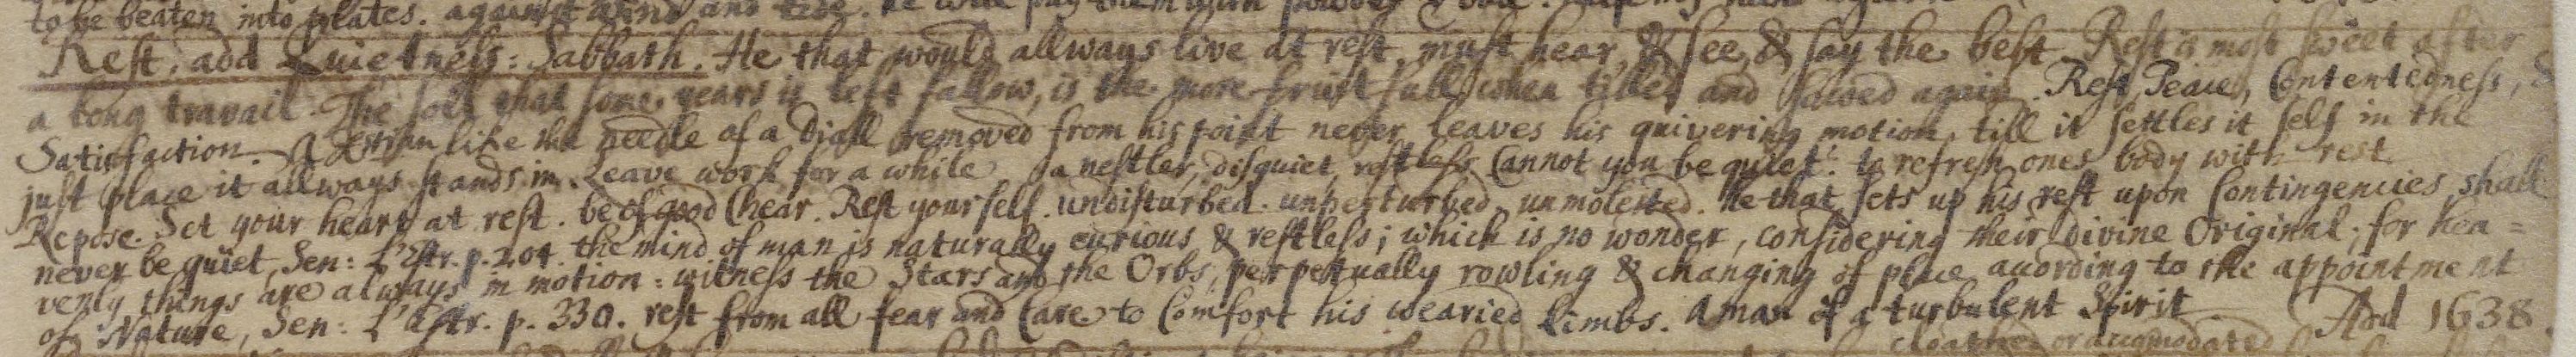 to be beaten into plates. against wind and tide. he will pay them with powder &
Rest, add Quietness: Sabbath. He that would allways live at rest, must hear, & see, & say the best. Rest is most sweet after
a long travail. The soil that some years is left fallow, is the more fruitfull when tilled and sowed again. Rest, Peace, Contentedness, &
Satisfaction. A like the needle of a Diall removed from his point never leaves his quivering motion, till it settles it self in the
just place it allways stands in. Leave work for a while. a nestler, disquiet, restless Cannot you be quiet? to refresh ones body with rest
Repose. Set your heart at rest. be of good Chear. Rest yourself. undisturbed. unperturbed. unmolested. He that sets up his rest upon Contingencies shall
never be quiet, Sen: L'Estr. p. 204. the mind of man is naturally curious & restless; which is no wonder, considering their divine Original; for hea=
venly things are always in motion: witness the Stars and the Orbs, perpetually rowling & changing of place according to the appointment
of Nature, Sen: L'Estr. p. 330. rest from all fear and Care to Comfort his wearied Limbs. A man of a turbulent Spirit Add 1638.
cloathed or accomodated